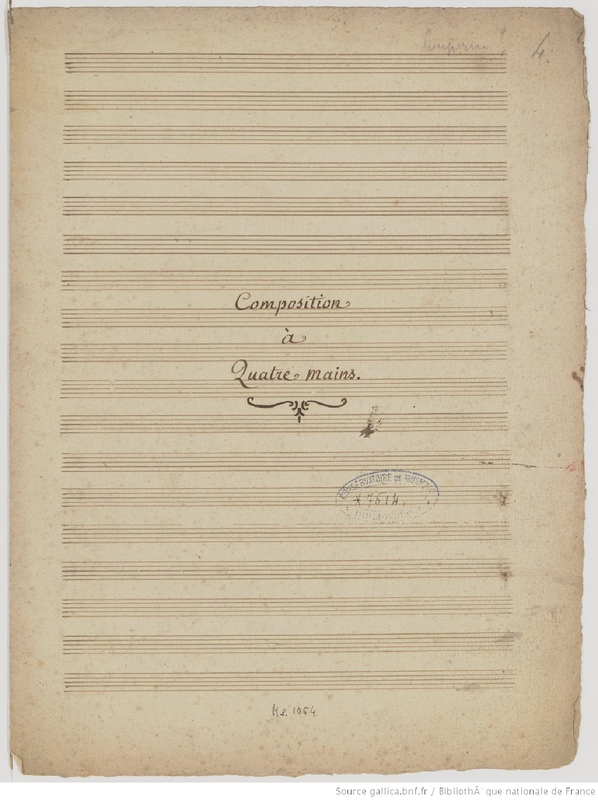 4.
Composition
à
Quatre mains.
CONSERVATOIRE DE MUSIQUE
7614.
Ms. 1064
Source gallica.bnf.fr / BibliothÃ¨que nationale de France